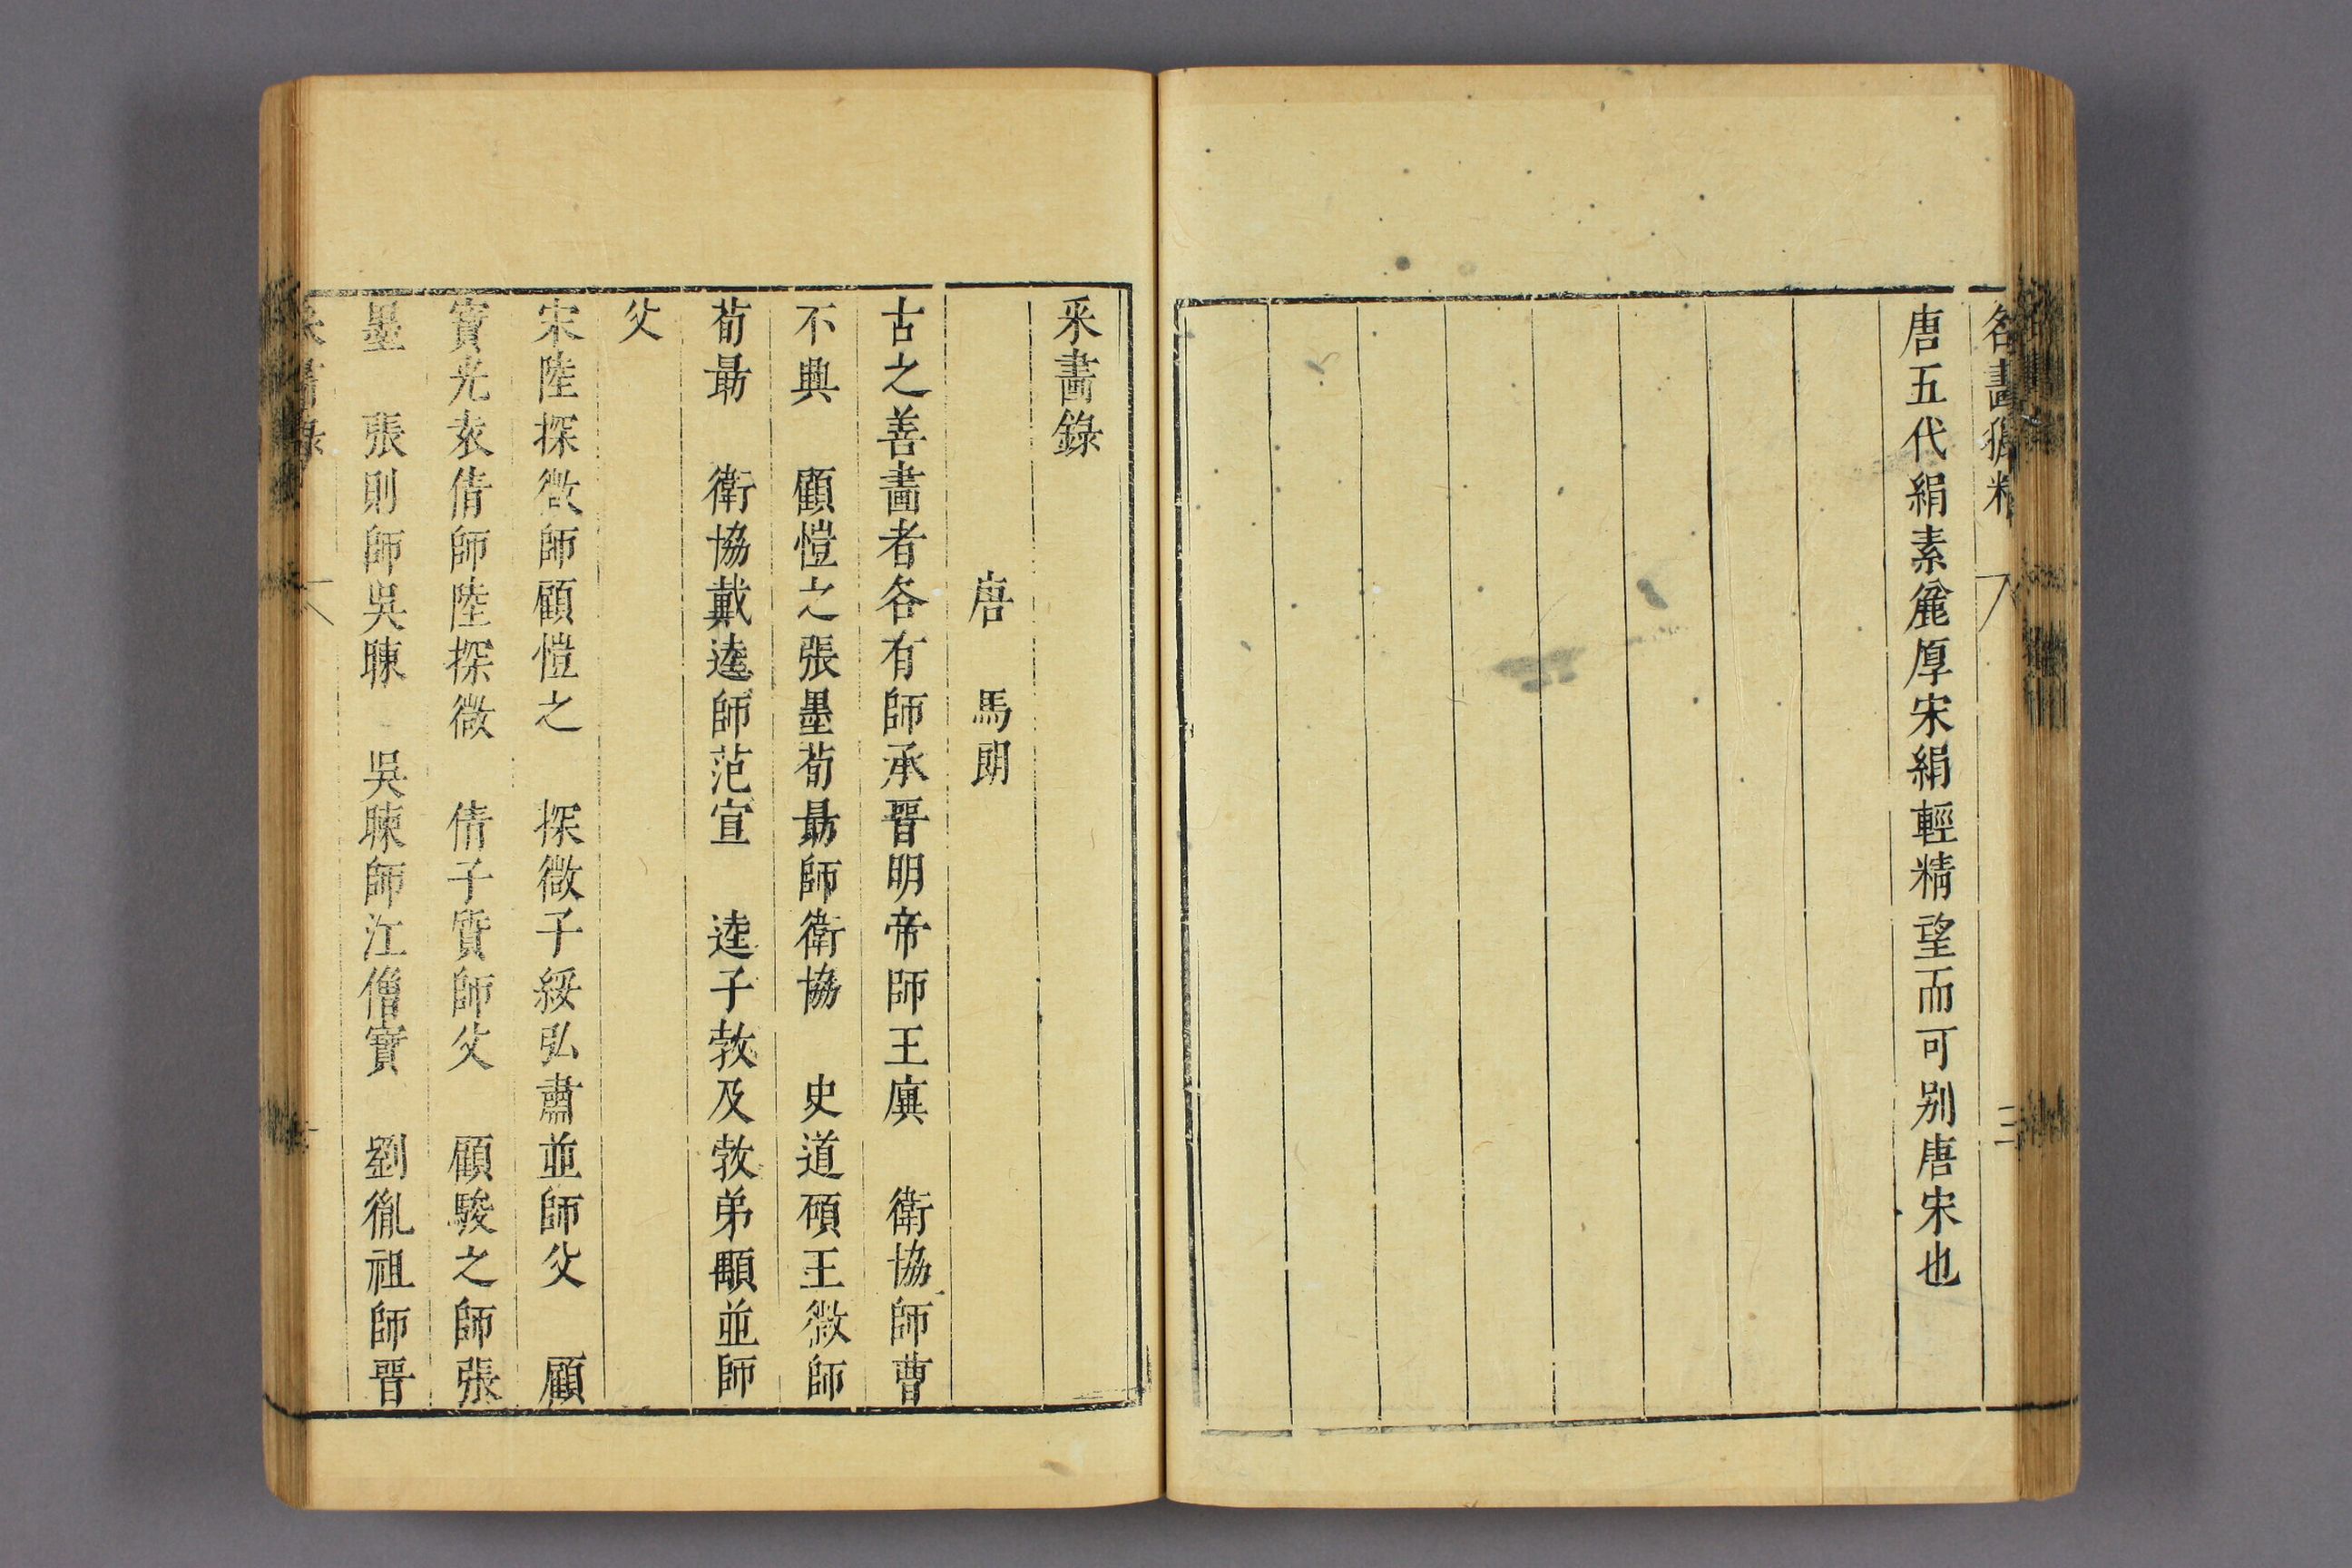 唐五代絹素麄厚宋絹輕精望而可别唐宋也
三
采畫錄
唐　馬朗
古之善畫者各有師承晉明帝師王廙　衛協師曹
不興　顧愷之張墨荀勗師衛協　史道碩王微師
荀勗　衛協戴逵師范宣　逵子敦及敦弟顒並師
父
宋陸探微師顧愷之　探微子綏弘肅並師父　顧
寶光袁倩師陸探微　倩子質師父　顧駿之師張
墨　張則師吳暕　吳暕師江僧寶　劉胤祖師晉